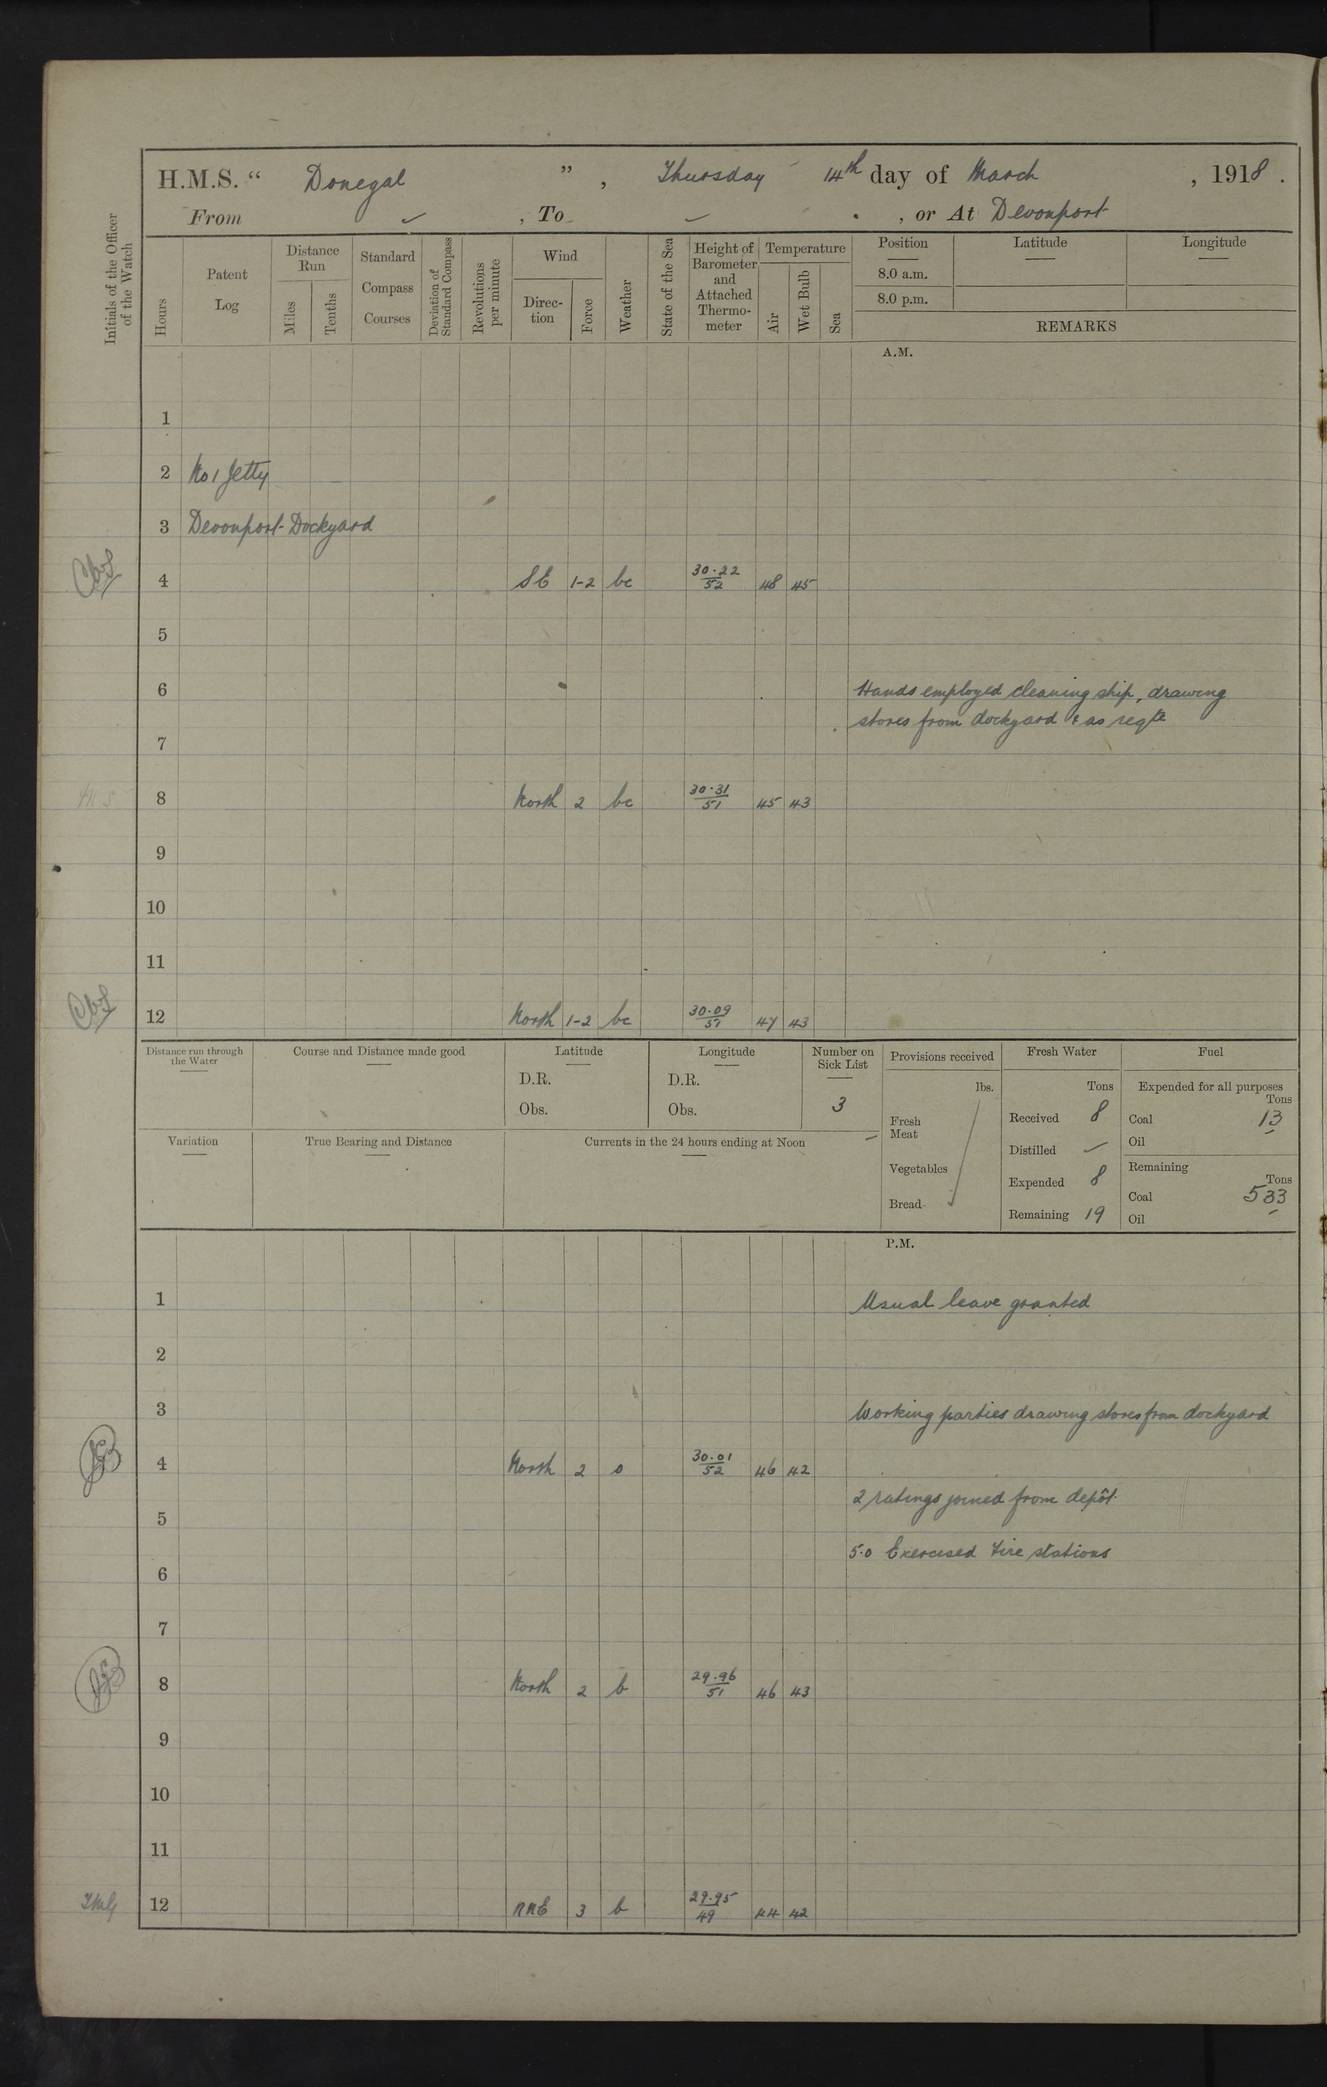 H.M.S. “ Donegal ” , Thursday 14th day of March , 1918 .
From ✓ , To ✓ , or At Devonport
Initials of the Officer of the Watch
Hours
Patent Log
Distance Run
Miles
Tenths
Standard Compass Courses
Deviation of Standard Compass
Revolutions per minute
Wind
Direc-tion
Force
Weather
State of the Sea
Height of Barometer and Attached Thermo-meter
Temperature
Air
Wet Bulb
Sea
Position
Latitude
Longitude
8.0 a.m.
8.0 p.m.
REMARKS
A.M.
1
2 No 1 Jetty
3 Devonport Dockyard
4 SE 1-2 bc 30.22/52 48 45
5
6 Hands employed cleaning ship, drawing
stores from dockyard & as reqte
7
8 North 2 bc 30.31/51 45 43
9
10
11
12 North 1-2 bc 30.09/51 47 43
Distance run through the Water
Course and Distance made good
Latitude
D.R.
Obs.
Longitude
D.R.
Obs.
Number on Sick List
3
Variation
True Bearing and Distance
Currents in the 24 hours ending at Noon
Provisions received
lbs.
Fresh Meat
Vegetables
Bread
Fresh Water
Tons
Received 8
Distilled —
Expended 8
Remaining 19
Fuel
Expended for all purposes
Tons
Coal 13
Oil
Remaining
Tons
Coal 533
Oil
P.M.
1 Usual leave granted
2
3 Working parties drawing stores from dockyard
4 North 2 o 30.01/52 46 42
2 ratings joined from depôt.
5
5.0 Exercised Fire stations
6
7
8 North 2 b 29.96/51 46 43
9
10
11
12 NNE 3 b 29.95/49 44 42